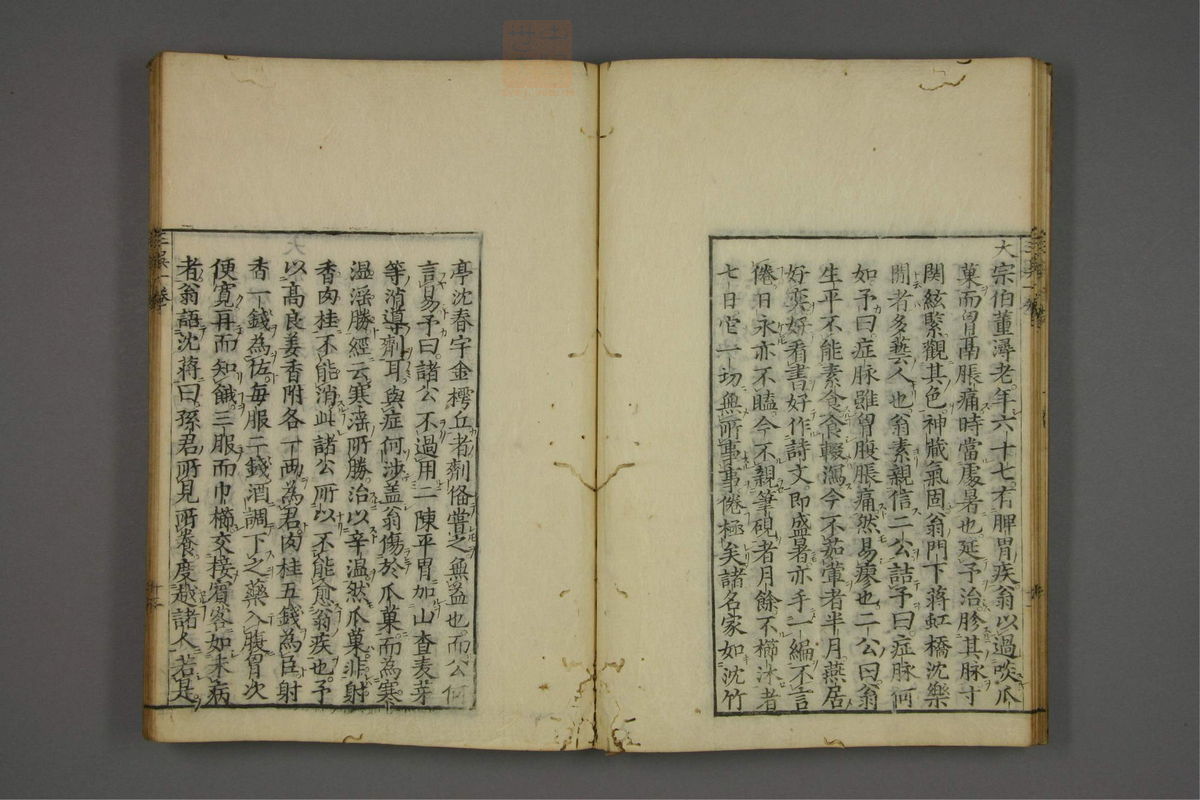 大宗伯董潯老年六十七有脾胃疾翁以過啖瓜
菓而胃鬲脹痛時當處暑也延予治胗其脉寸
関絃緊觀其色神藏氣固翁門下蔣虹橋沈樂
閒者多藝人也翁素親信二公詰予曰症脉何
如予曰症脉雖胃腹脹痛然易瘳也二公曰翁
生平不能素食食輟瀉今不茹葷者半月燕居
好奕好看書好作詩文即盛暑亦手一編不言
倦日永亦不瞌今不親筆硯者月餘不櫛沐者
七日它一切無所事事倦極矣諸名家如沈竹
亭沈春宇金樗丘者劑俻嘗之無益也而公何
言易予曰諸公不過用二陳平胃加山查麦芽
等消導劑耳與症何涉盖翁傷於瓜菓而為寒
温滛勝經云寒滛所勝治以辛温然瓜菓非射
香肉桂不能消此諸公所以不能愈翁疾也予
以髙良姜香附各一两為君肉桂五錢為臣射
香一錢為佐毎服二錢酒調下之藥入腹胃次
便寛再而知餓三服而巾櫛交接賓客如未病
者翁語沈蔣曰孫君所見所養度越諸人若是